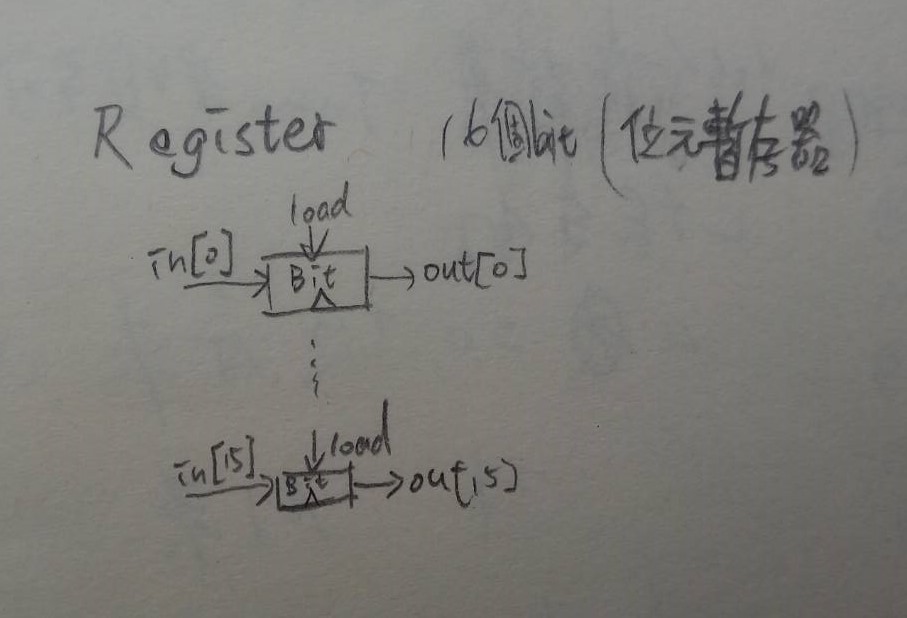 Register 16個bit(位元暫存器)
load
in[0] Bit out[0]
load
in[15] Bit out[15]